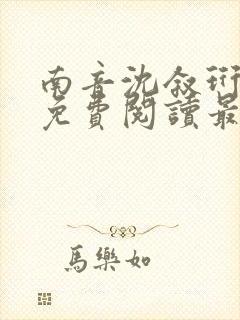 南音沈叙珩
免費閱讀最
馬樂如